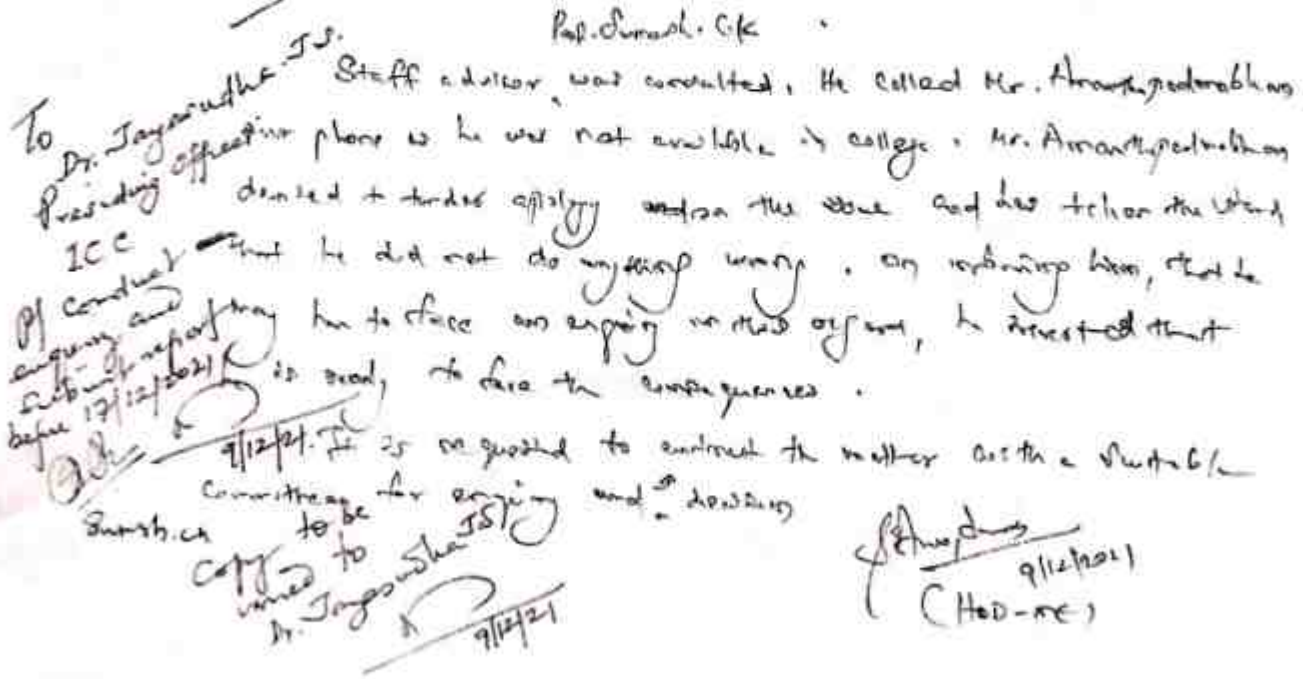 Prof. Suresh. C.K
Staff advisor was consulted. He called Mr. Ananthapadmabhan
phone as he was not available in college. Mr. Ananthapadmabhan
denied to tender apology the and has taken the stand
that he did not do anything wrong. On informing him, that he
may have to face an enquiry in this regard, he that
is ready to face the consequences.
It is requested to entrust the matter with a suitable
Committee for enquiry and decision
9/12/2021
(HOD-ME)
To
Dr. Jayasudha J.S.
Presiding officer
ICC
Pl conduct
enquiry and
submit report
before 17/12/2021
9/12/21
Suresh.ck
Copy to be
to
Dr. Jayasudha JS
9/12/21